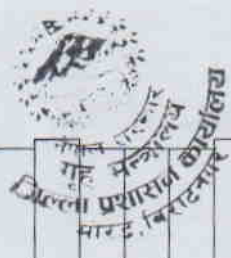 नेपाल सरकार
गृह मन्त्रालय
जिल्ला प्रशासन कार्यालय
मोरङ, विराटनगर